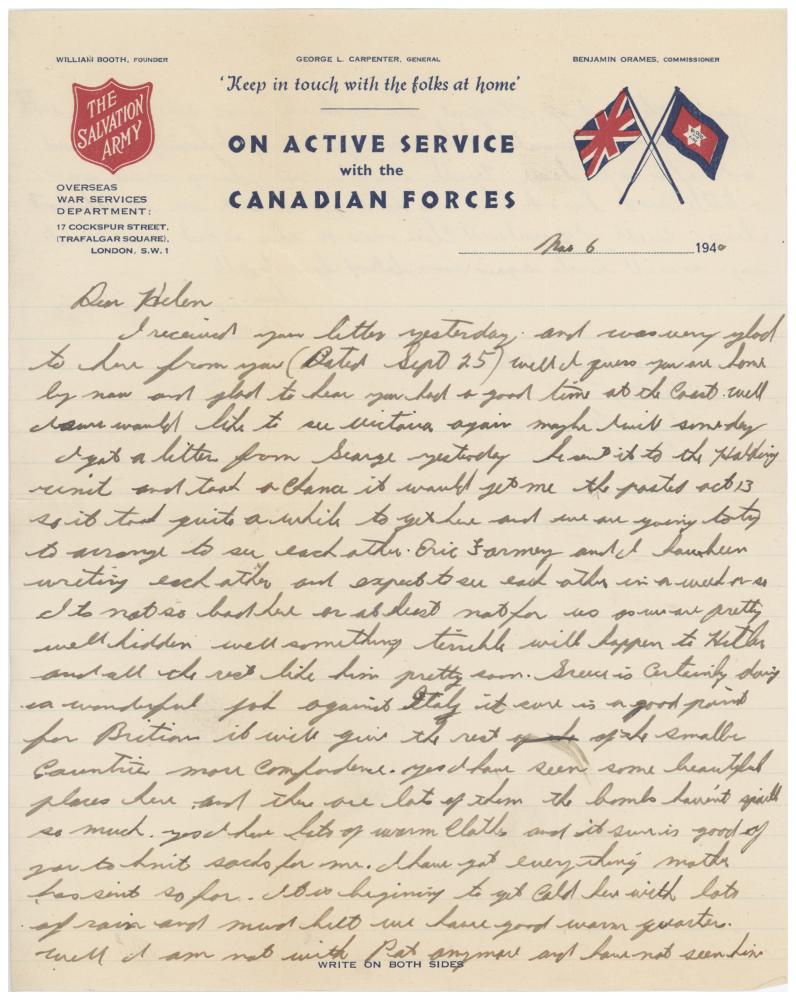 WILLIAM BOOTH, FOUNDER
GEORGE L. CARPENTER, GENERAL
BENJAMIN ORAMES, COMMISSIONER
'Keep in touch with the folks at home'
THE
SALVATION
ARMY
ON ACTIVE SERVICE
with the
CANADIAN FORCES
OVERSEAS
WAR SERVICES
DEPARTMENT:
17 COCKSPUR STREET,
(TRAFALGAR SQUARE),
LONDON, S.W.1
6 1940
Dear Helen
I received your letter yesterday. and was very glad
to here from you (Dated Sept 25) well I guess you are home
by now and glad to hear you had a good time at the Coast. well
I sure would like to see Victoria again maybe I will someday
I got a letter from George yesterday he sent it to the Holding
unit and took a chance it would get me posted oct 13
so it took quite a while to get here and we are going to try
to arrange to see each other. Eric and I have been
writing each other and expect to see each other in a week or so
Its not so bad here or at least not for us as we are pretty
well hidden well something terrible will happen to Hitler
and all the rest like him pretty soon. Greece is Certainly doing
a wonderful job against Italy it sure is a good point
for Britian it will give the rest of the smaller
Countries more Confordence. yes I have seen some beautiful
places here and there are lots of them the bombs havent spoilt
so much. yes I have lots of warm Cloths and it sure is good of
you to knit socks for me. I have got everything mother
has sent so far. It is begining to get Cold here with lots
of rain and mud but we have good warm quarters.
well I am not with Pat anymore and have not seen him
WRITE ON BOTH SIDES